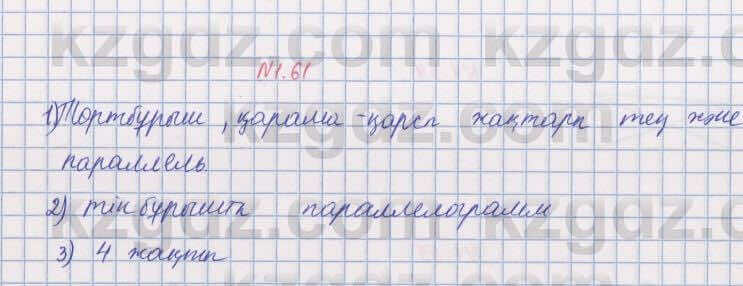 kzgdz.com kzgdz.com
№1.61
1) Төртбұрыш, қарама-қарсы жақтары тең және
параллель.
2) тікбұрышты параллелограмм
3) 4 жақты